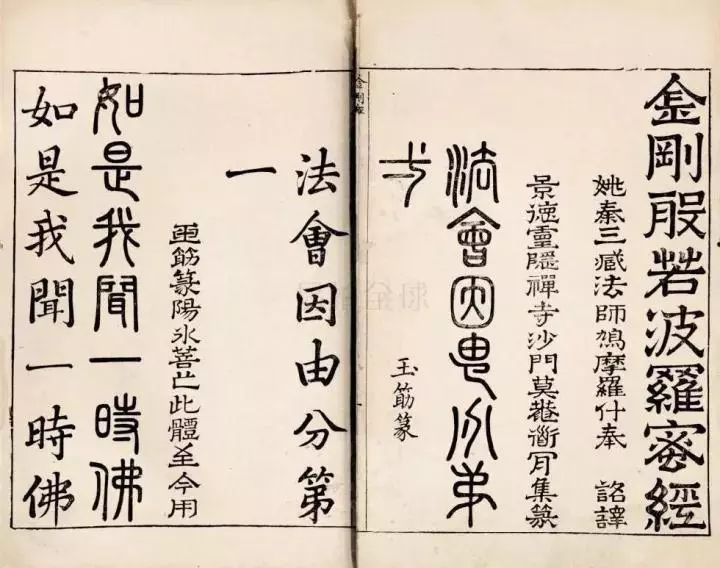 金剛般若波羅蜜經
姚秦三藏法師鳩摩羅什奉 詔譯
景德靈隱禪寺沙門莫菴道肯集篆
法會因由分第
弌
玉筯篆
金剛經
法會因由分第
一
筯篆陽氷善此體至今用
如是我聞一時佛
如是我聞一時佛